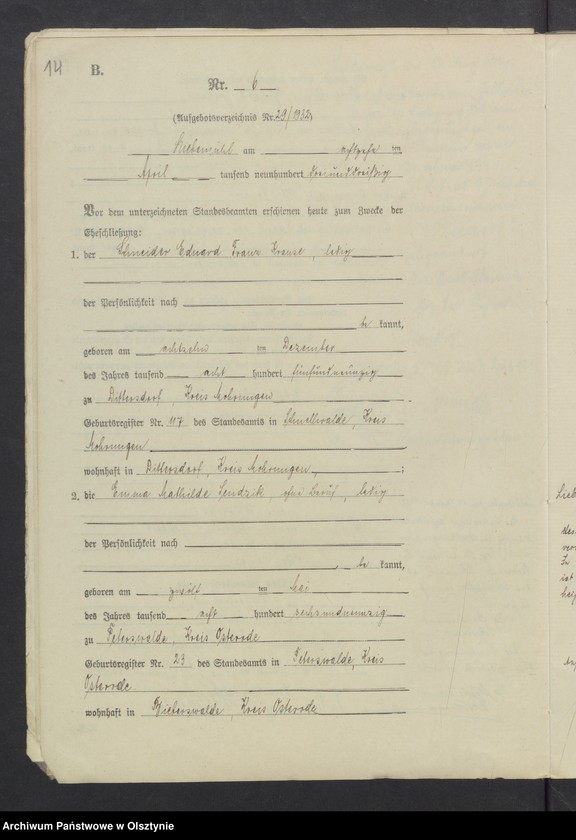 14
B.
Nr. 6
(Aufgebotsverzeichnis Nr. 29/1932)
Liebemühl am achtzehn ten
April tausend neunhundert dreiunddreißig
Vor dem unterzeichneten Standesbeamten erschienen heute zum Zwecke der
Eheschließung:
1. der Schneider Eduard Franz Krause, ledig
der Persönlichkeit nach
be kannt,
geboren am achtzehn ten Dezember
des Jahres tausend acht hundert fünfundneunzig
zu Dittersdorf, Kreis Mohrungen
Geburtsregister Nr. 117 des Standesamts in Schnellwalde, Kreis
Mohrungen
wohnhaft in Dittersdorf, Kreis Mohrungen,;
2. die Emma Mathilde Sendzik, ohne Beruf, ledig
der Persönlichkeit nach
, be kannt,
geboren am zwölf ten Mai
des Jahres tausend acht hundert sechsundneunzig
zu Peterswalde, Kreis Osterode
Geburtsregister Nr. 23 des Standesamts in Peterswalde, Kreis
Osterode
wohnhaft in Bieberswalde, Kreis Osterode
Lieb
Archiwum Państwowe w Olsztynie